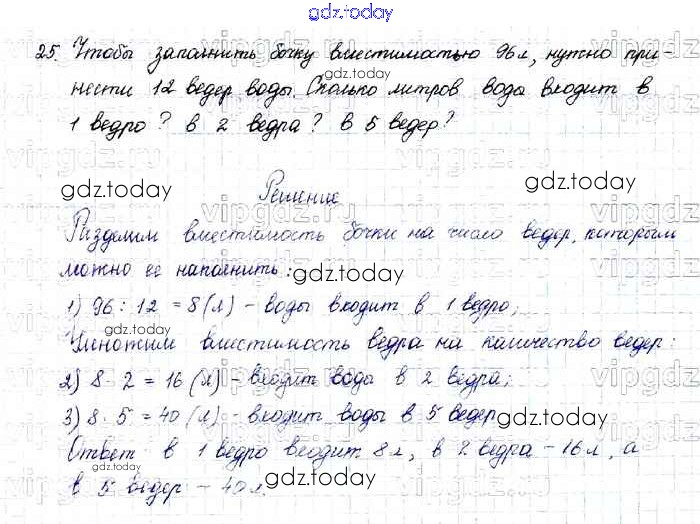 gdz.today
25. Чтобы заполнить бочку вместимостью 96 л, нужно при-
нести 12 ведер воды. Сколько литров воды входит в
1 ведро? в 2 ведра? в 5 ведер?
Решение
Разделим вместимость бочки на число ведер, которым
можно ее наполнить:
1) 96 : 12 = 8 (л) - воды входит в 1 ведро;
Умножим вместимость ведра на количество ведер:
2) 8 · 2 = 16 (л) - входит воды в 2 ведра;
3) 8 · 5 = 40 (л) - входит воды в 5 ведер
Ответ в 1 ведро входит 8 л, в 2 ведра - 16 л, а
в 5 ведер - 40 л.
gdz.today
gdz.today
gdz.today
gdz.today
gdz.today
gdz.today
gdz.today
gdz.today
vipgdz.ru